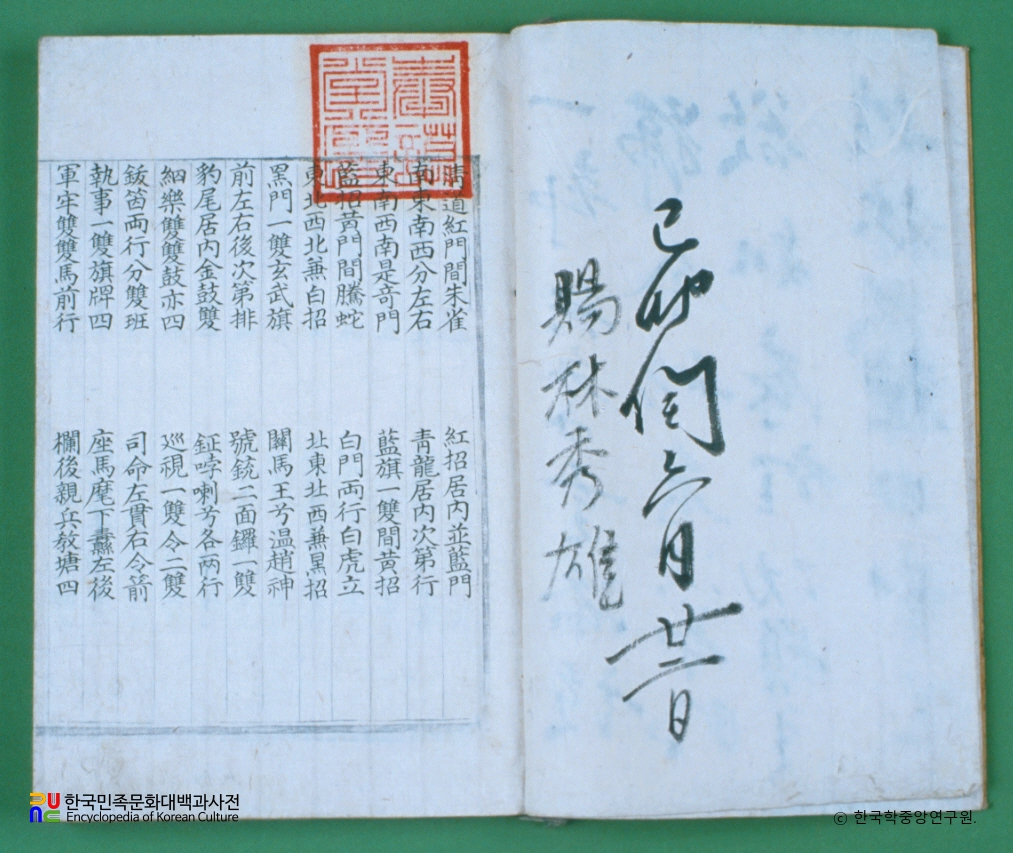 己卯閏六月廿二日
賜林秀雄
淸道紅門間朱雀 紅招居內並藍門
南東南西分左右 青龍居內次第行
東南西南是奇門 藍旗一雙間黄招
藍招黄門間騰蛇 白門兩行白虎立
東北西北兼白招 北東北西兼黑招
黑門一雙玄武旗 關馬王兮温趙神
前左右後次第排 號銃二面鑼一雙
豹尾居內金鼓雙 鉦哱喇兮各兩行
細樂雙雙鼓亦四 巡視一雙令二雙
鈸笛兩行分雙班 司命左貫右令箭
執事一雙旗牌四 座馬麾下纛左後
軍牢雙雙馬前行 欄後親兵敎塘四
한국민족문화대백과사전
Encyclopedia of Korean Culture
© 한국학중앙연구원.